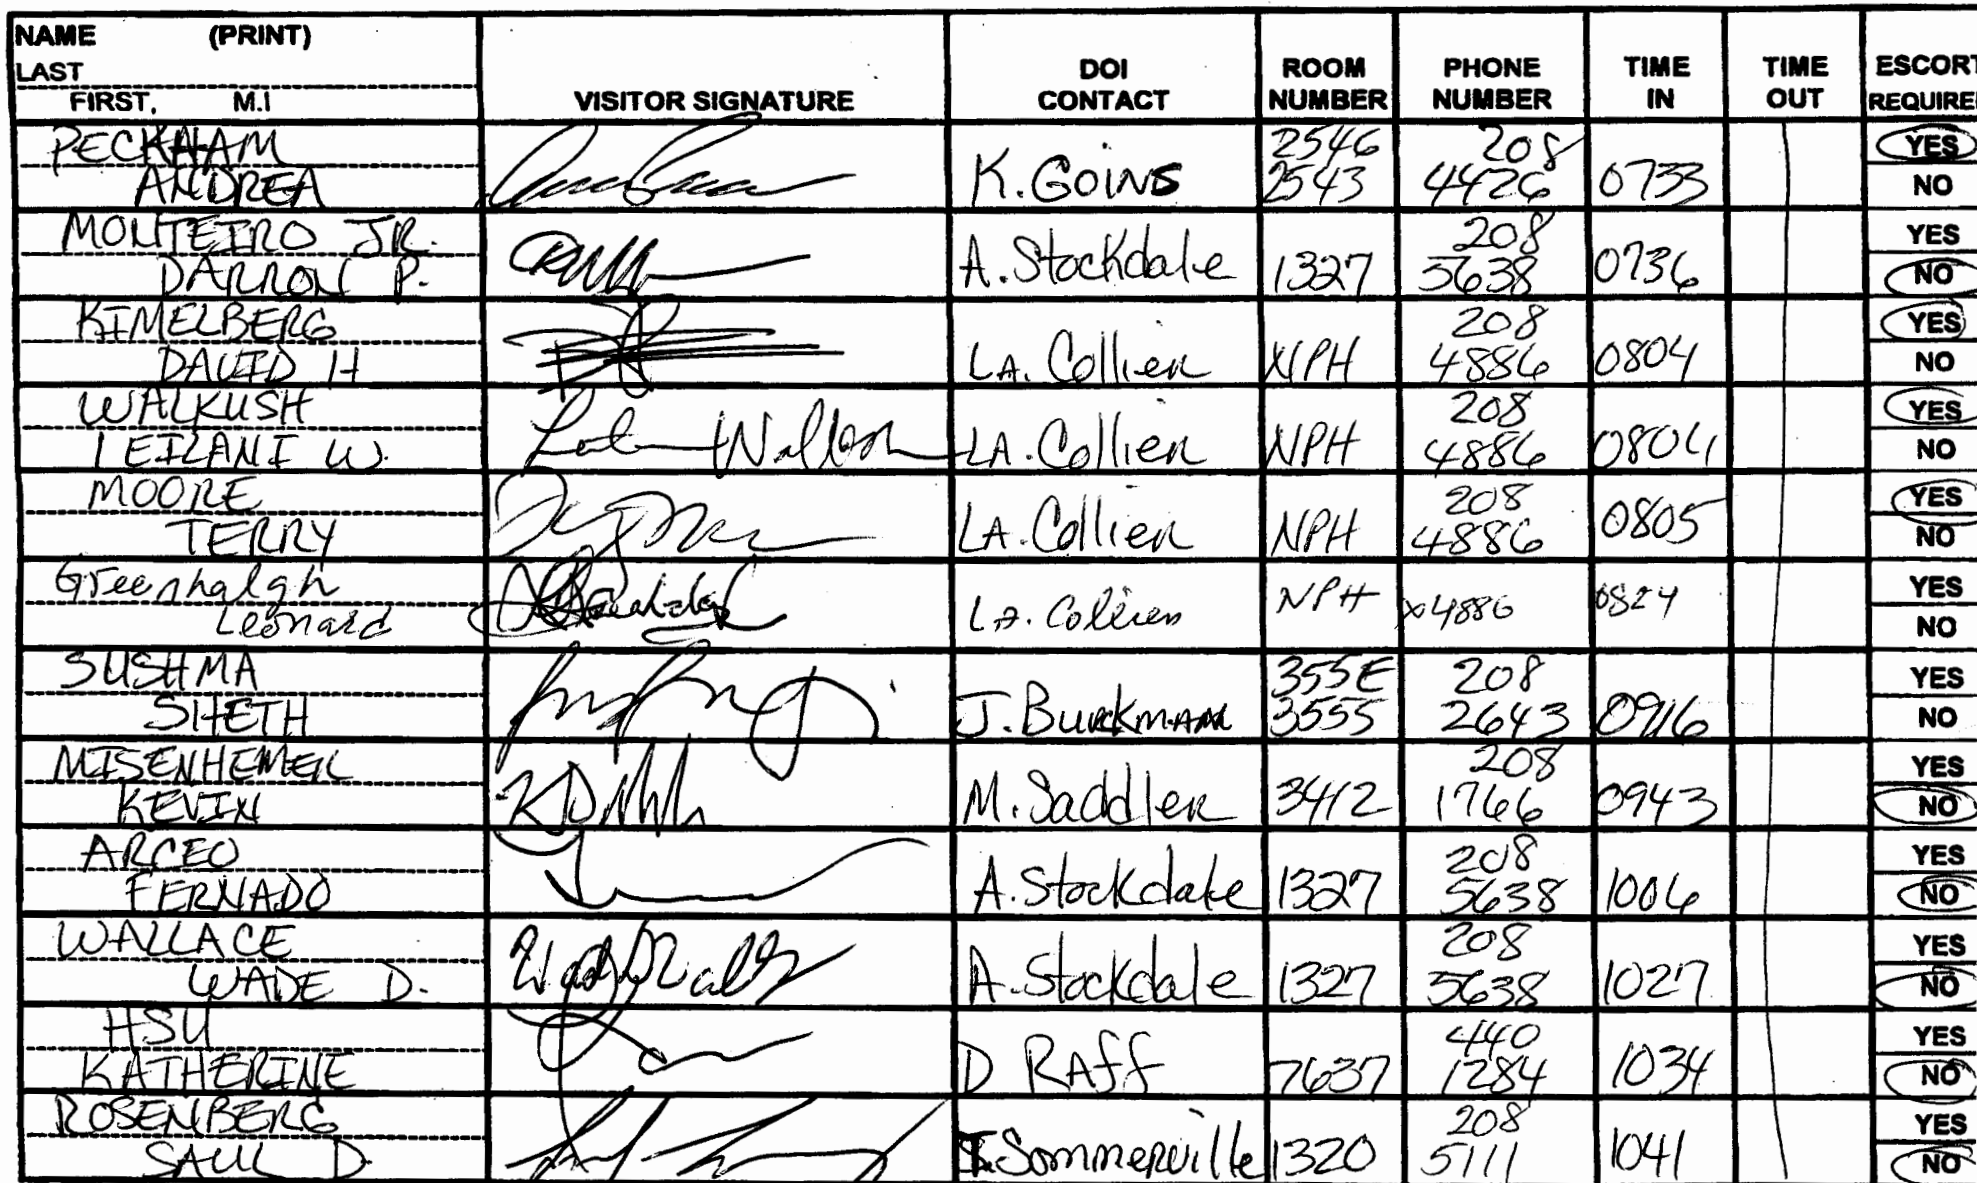 NAME (PRINT)
LAST
FIRST, M.I
VISITOR SIGNATURE
DOI
CONTACT
ROOM
NUMBER
PHONE
NUMBER
TIME
IN
TIME
OUT
ESCORT
REQUIRE
PECKHAM
ANDREA
K. GOINS
2546
2543
208
4426
0733
YES
NO
MONTEIRO JR.
DARRON P.
A. Stockdale
1327
208
5638
0736
YES
NO
KIMELBERG
DAVID H
LA. Collier
NPH
208
4886
0804
YES
NO
WALKUSH
LEILANI W.
LA. Collier
NPH
208
4886
0804
YES
NO
MOORE
TERRY
LA. Collier
NPH
208
4886
0805
YES
NO
Greenhalgh
Leonard
LA. Collier
NPH
x4886
0824
YES
NO
SUSHMA
SHETH
J. Burckman
355E
3555
208
2643
0916
YES
NO
MISENHEMER
KEVIN
M. Saddler
3412
208
1766
0943
YES
NO
ARCEO
FERNADO
A. Stockdale
1327
208
5638
1006
YES
NO
WALLACE
WADE D.
A. Stockdale
1327
208
5638
1027
YES
NO
HSU
KATHERINE
D RAFF
7637
440
1284
1034
YES
NO
ROSENBERG
SAUL D
Sommerville
1320
208
5111
1041
YES
NO